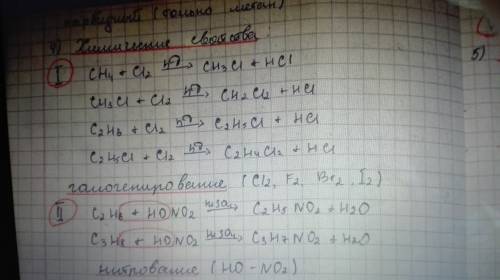 (только метан)
4) Химические свойства.
I CH4 + Cl2 hν→ CH3Cl + HCl
CH3Cl + Cl2 hν→ CH2Cl2 + HCl
C2H6 + Cl2 hν→ C2H5Cl + HCl
C2H5Cl + Cl2 hν→ C2H4Cl2 + HCl
галогенирование (Cl2, F2, Br2, I2)
II C2H6 + HONO2 H2SO4→ C2H5NO2 + H2O
C3H8 + HONO2 H2SO4→ C3H7NO2 + H2O
нитрование (HO - NO2)
5)